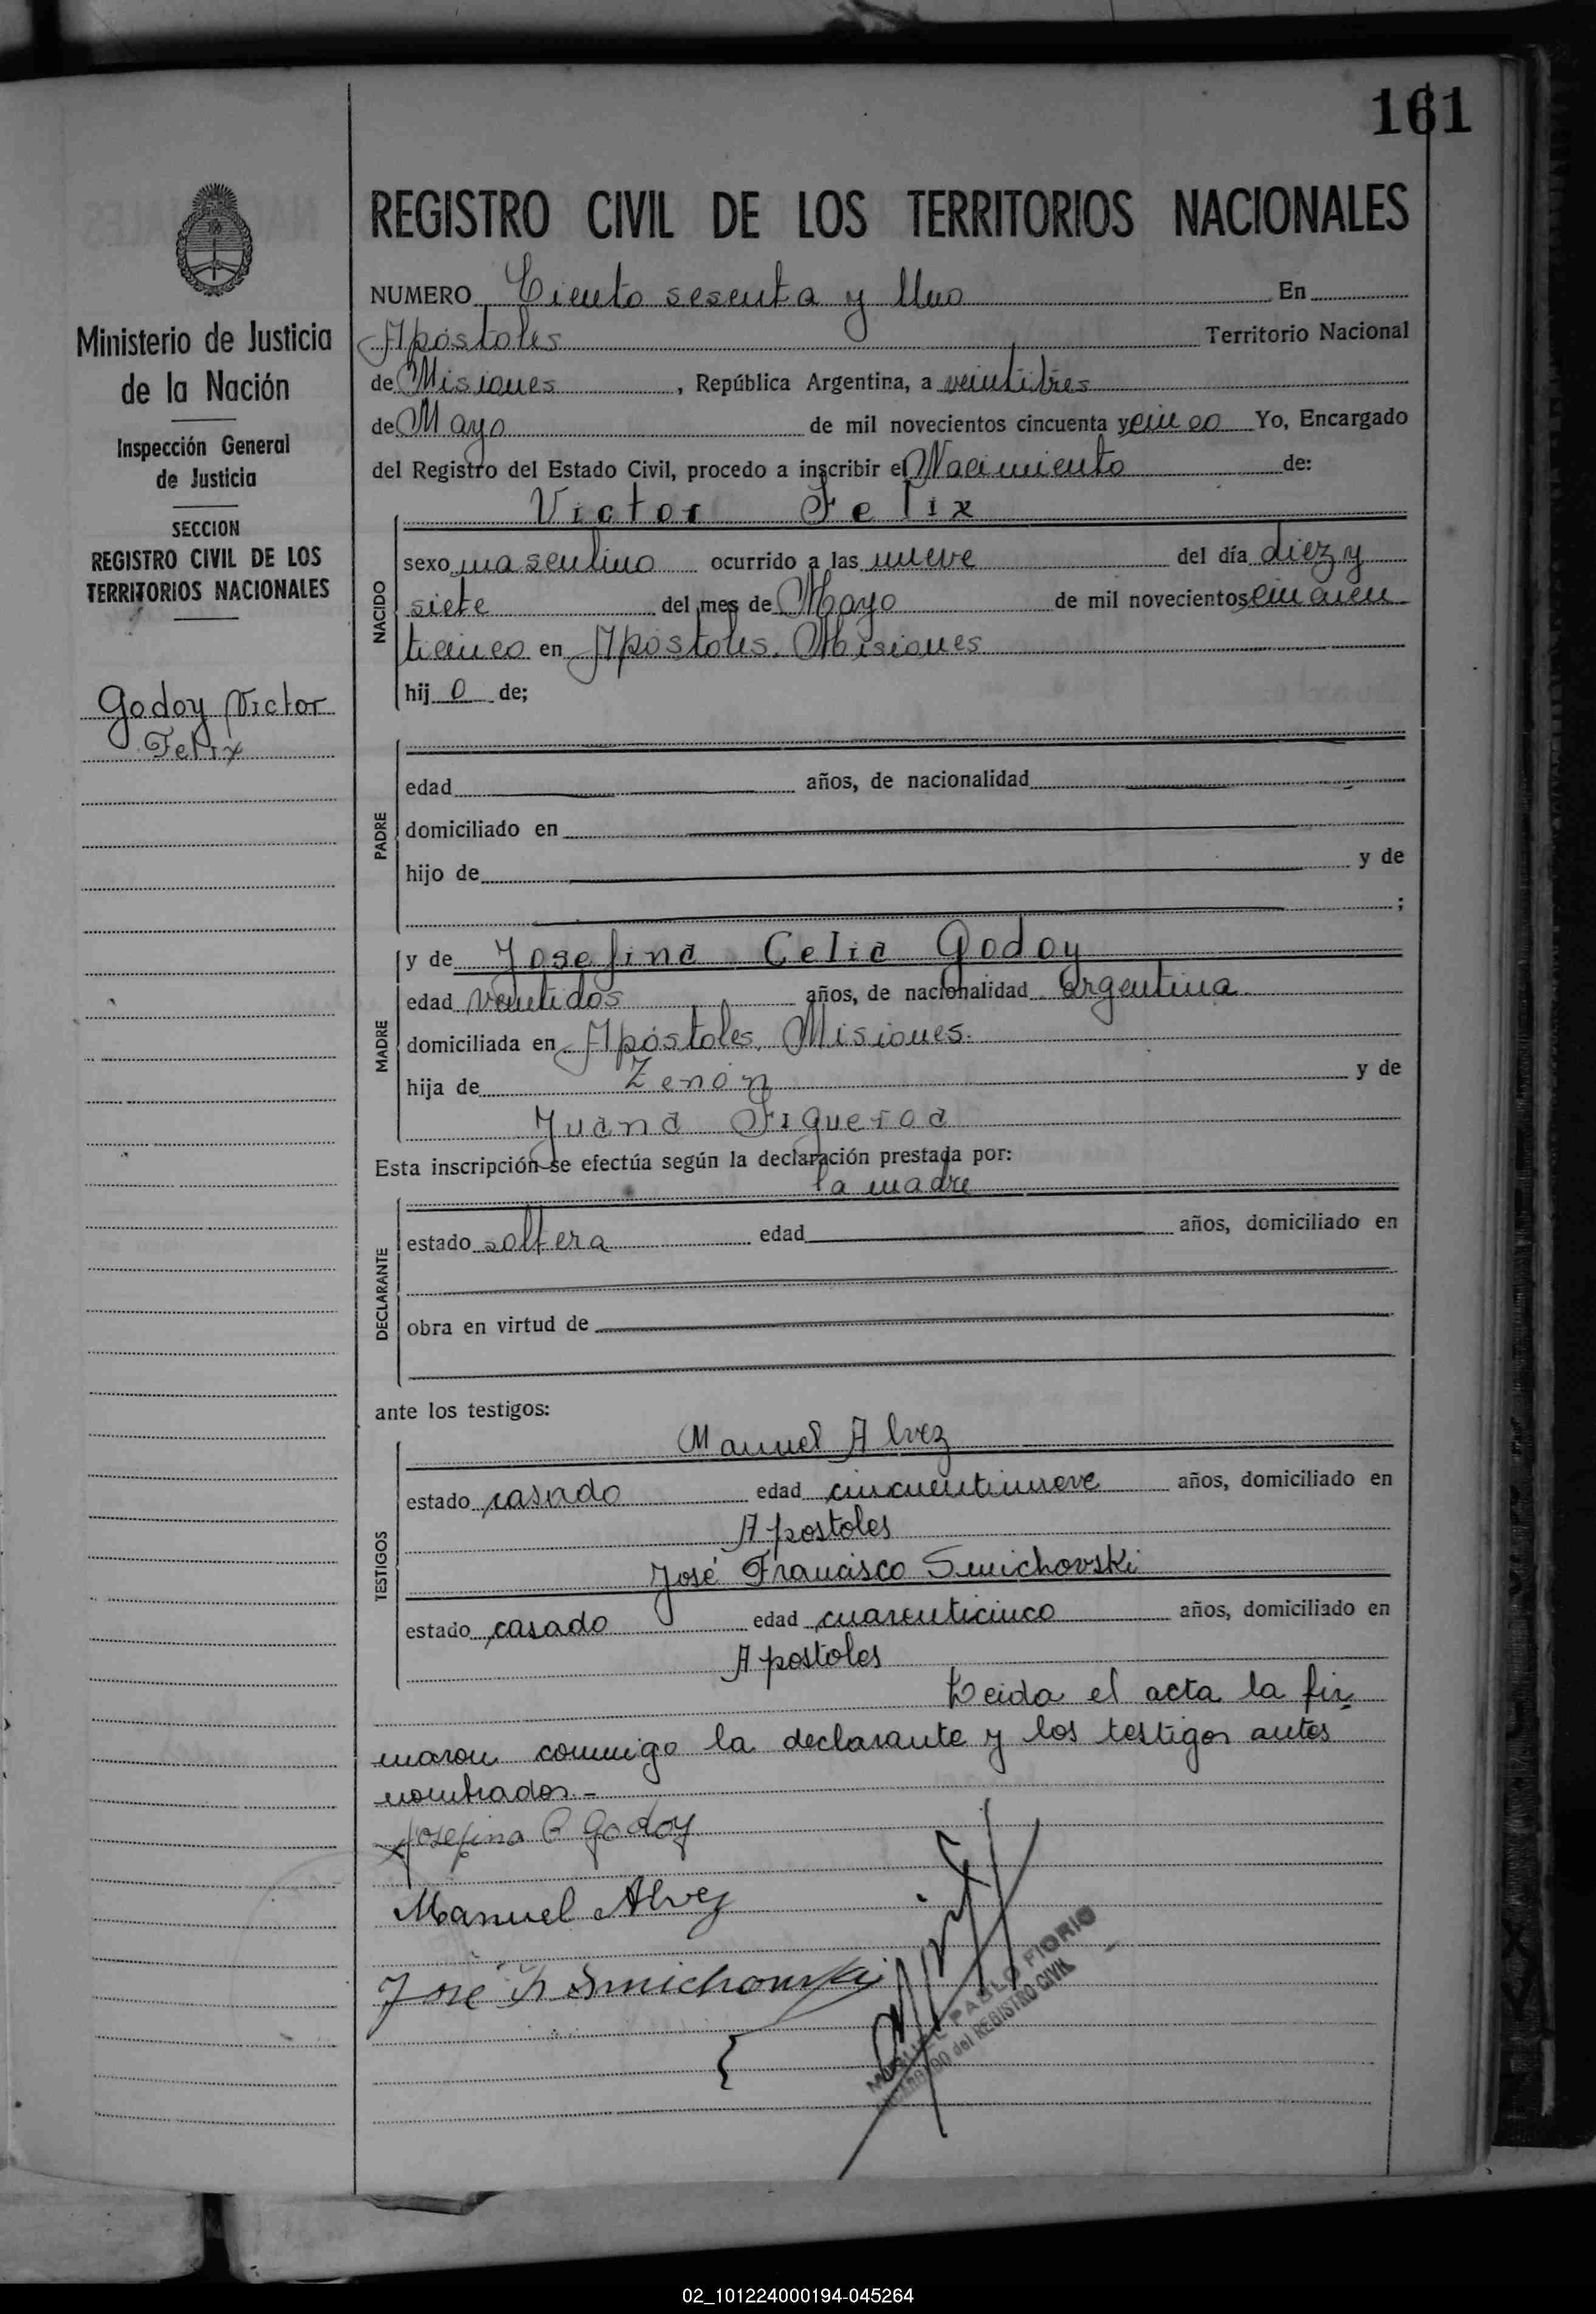 161
Ministerio de Justicia
de la Nación
Inspección General
de Justicia
SECCION
REGISTRO CIVIL DE LOS
TERRITORIOS NACIONALES
Godoy Victor
Felix
REGISTRO CIVIL DE LOS TERRITORIOS NACIONALES
NUMERO Ciento sesenta y Uno En
Apóstoles Territorio Nacional
de Misiones, República Argentina, a veintitres
de Mayo de mil novecientos cincuenta y cinco Yo, Encargado
del Registro del Estado Civil, procedo a inscribir el Nacimiento de:
Victor Felix
NACIDO
sexo masculino ocurrido a las nueve del día diez y
siete del mes de Mayo de mil novecientos cincuen
ticinco en Apóstoles. Misiones
hij o de;
PADRE
edad años, de nacionalidad
domiciliado en
hijo de y de
;
MADRE
y de Josefina Celia Godoy
edad veintidos años, de nacionalidad argentina
domiciliada en Apóstoles, Misiones.
hija de Zenón y de
Juana Figueroa
Esta inscripción se efectúa según la declaración prestada por:
la madre
DECLARANTE
estado soltera edad años, domiciliado en
obra en virtud de
ante los testigos:
TESTIGOS
Manuel Alvez
estado casado edad cincuentinueve años, domiciliado en
Apostoles
José Francisco Smichovski
estado casado edad cuarenticinco años, domiciliado en
Apostoles
Leida el acta la fir
maron conmigo la declarante y los testigos antes
nombrados.-
Josefina C Godoy
Manuel Alvez
José F Smichowski
PABLO FIORIO
ENCARGADO del REGISTRO CIVIL
02_101224000194-045264